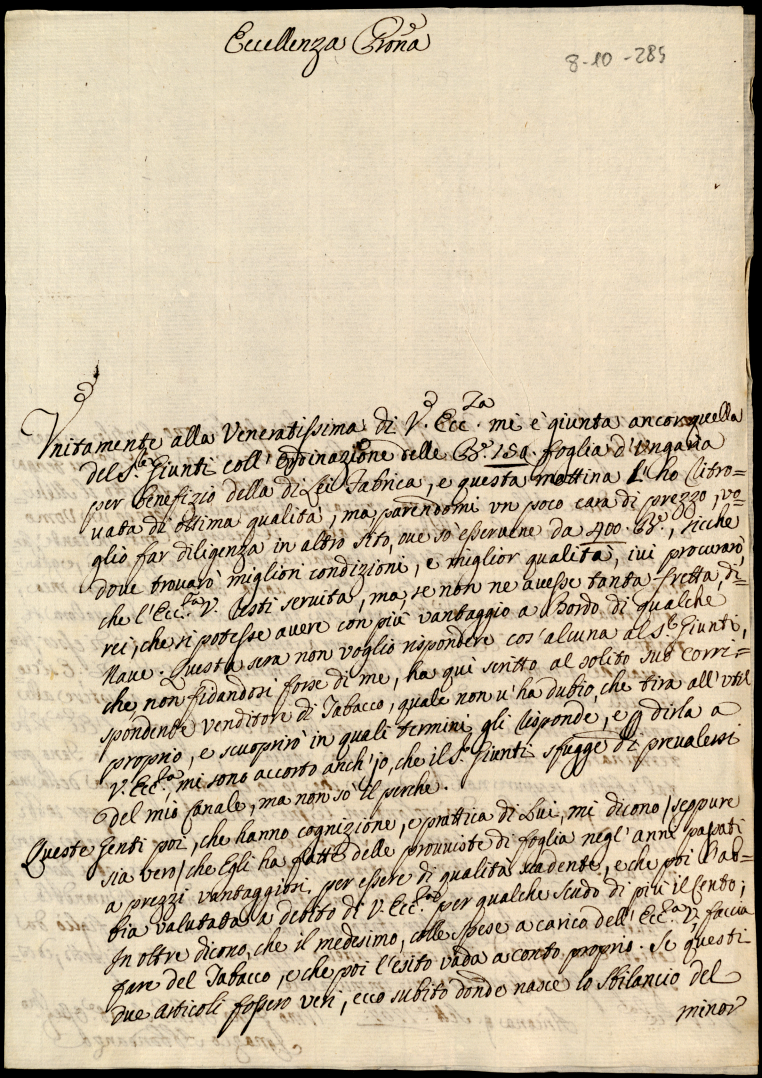 Eccellenza Prona
8-10-285
Unitamente alla Veneratissima di V. Ecc.za mi è giunta ancor quella
del S.r Giunti coll'ordinazione delle B.e 150. foglia d'Ungaria
per benefizio della di Lei Fabrica, e questa mattina l'ho ritro=
vata di ottima qualità, ma parendomi un poco cara di prezzo, vo=
glio far diligenza in altro sito, ove sò esservene da 400. B.e, sicche
dove trovarò migliori condizioni, e miglior qualità, ivi procurarò,
che l'Ecc.za V. resti servita, ma, se non ne avesse tanta fretta, di=
rei, che si potesse avere con più vantaggio a Bordo di qualche
Nave. Questa sera non voglio rispondere cos'alcuna al S.r Giunti,
che, non fidandosi forse di me, ha qui scritto al solito suo Corri=
spondente venditore di Tabacco, quale non v'ha dubio, che tira all'util
proprio, e scuoprirò in quali termini gli risponde, e p dirla a
V. Ecc.za, mi sono accorto anch'jo, che il S.r Giunti sfugge di prevalersi
del mio Canale, ma non so il perche.
Queste Genti poi, che hanno cognizione, e prattica di Lui, mi dicono /seppure
sia vero/ che Egli ha fatte delle proviste di foglia negl'anni passati
a prezzi vantaggiosi, per essere di qualità scadente, e che poi l'ab=
bia valutata a debito di V. Ecc.za per qualche scudo di più il Cento;
In oltre dicono, che il medesimo, colle spese a carico dell'Ecc.za V., faccia
fare del Tabacco, e che poi l'esito vada a conto proprio. Se questi
due Articoli fossero veri, ecco subito donde nasce lo Sbilancio del
minor